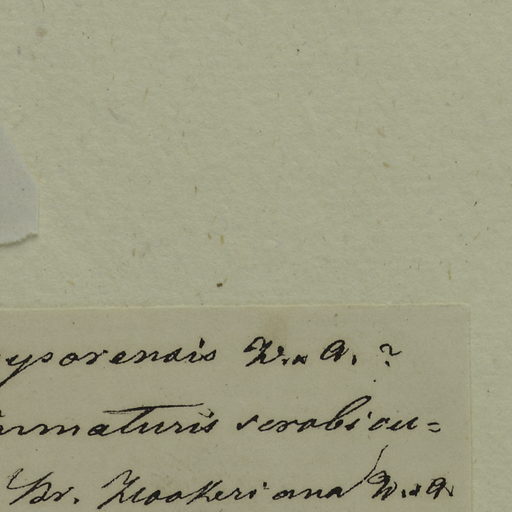 ysorensis W. & A. ?
immaturis scrobicu=
Br. Hookeriana W. & A